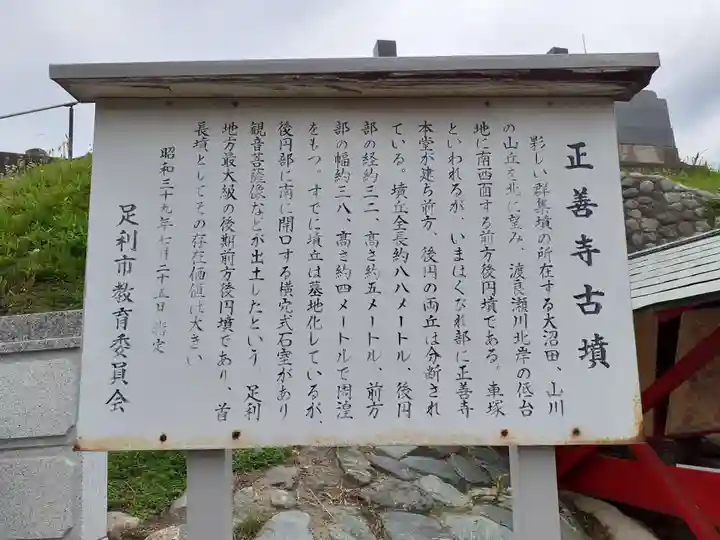 正善寺古墳
夥しい群集墳の所在する大沼田、山川
の山丘を北に望み、渡良瀬川北岸の低台
地に南西面する前方後円墳である。車塚
といわれるが、いまはくびれ部に正善寺
本堂が建ち前方、後円の両丘は分断され
ている。墳丘全長約八八メートル、後円
部の経約三二、高さ約五メートル、前方
部の幅約三八、高さ約四メートルで周湟
をもつ。すでに墳丘は墓地化しているが、
後円部に南に開口する横穴式石室があり
観音菩薩像などが出土したという 足利
地方最大級の後期前方後円墳であり、首
長墳としてその存在価値は大きい
昭和三十九年七月二十五日 指定
足利市教育委員会